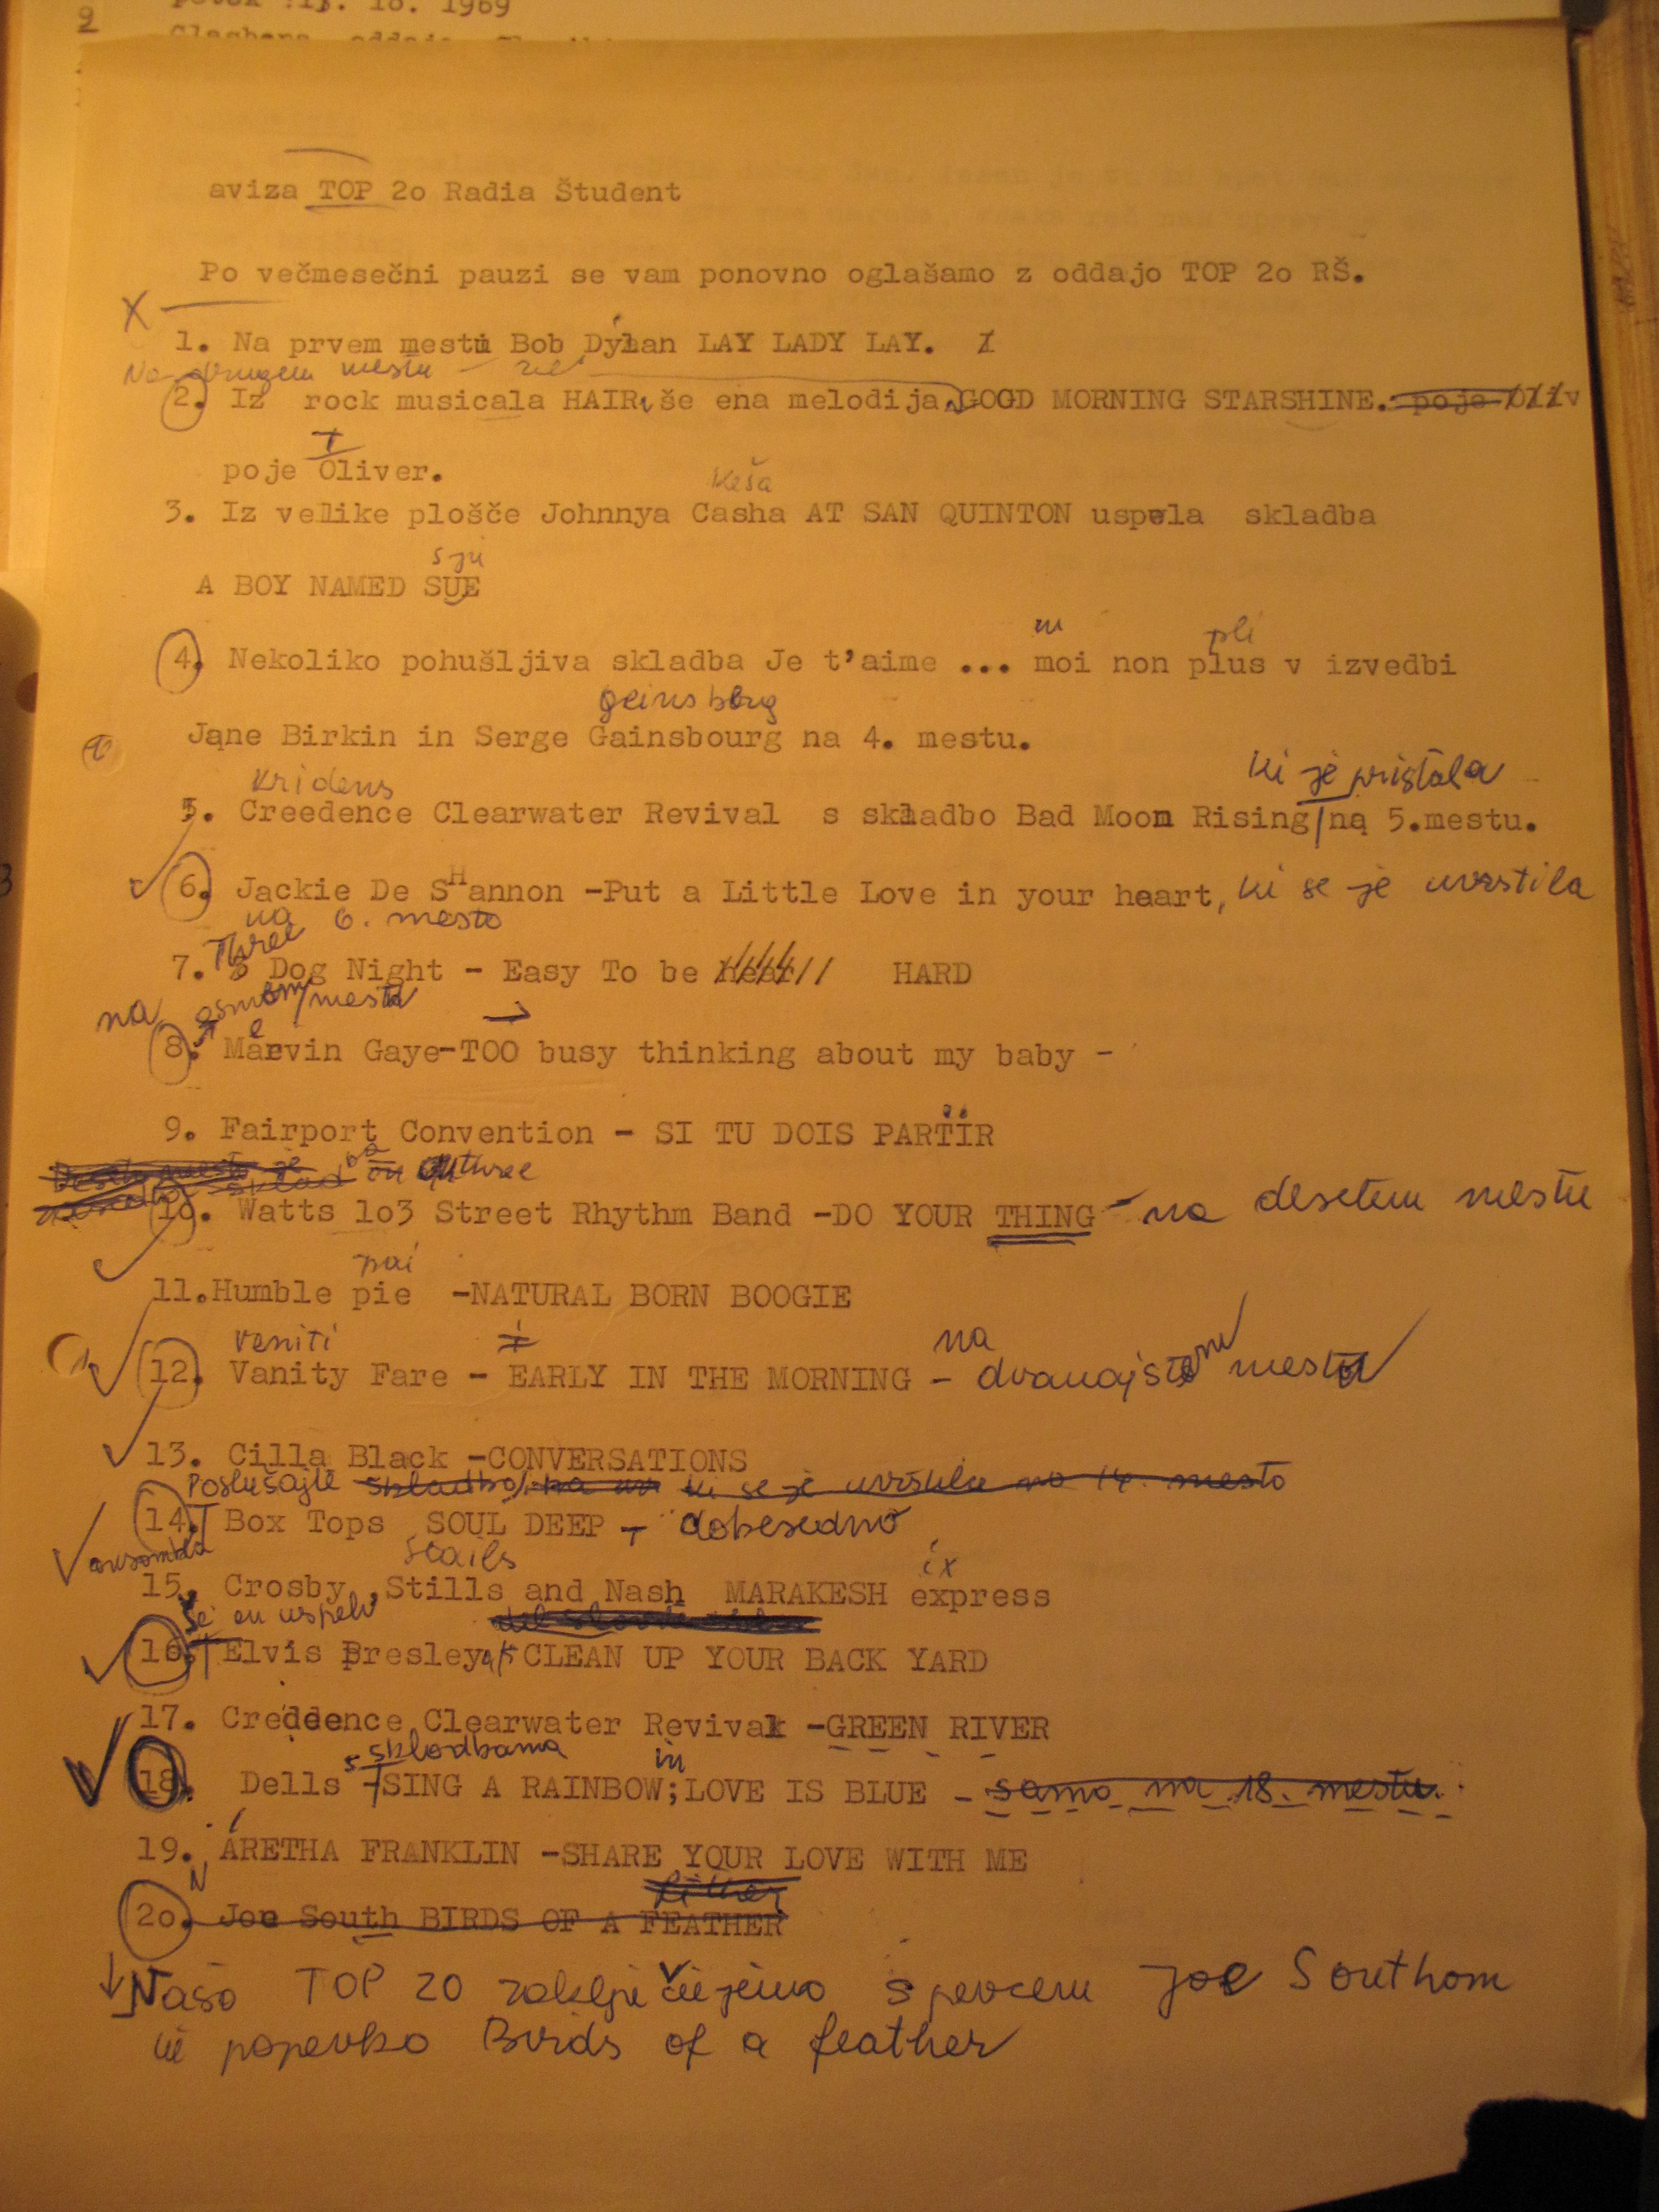 9
petek 13. 10. 1969
aviza TOP 2o Radia Študent
Po večmesečni pauzi se vam ponovno oglašamo z oddajo TOP 2o RŠ.
X
1. Na prvem mestu Bob Dylan LAY LADY LAY.
Na drugem mestu
2. Iz rock musicala HAIR, še ena melodija GOOD MORNING STARSHINE. poje
poje Oliver.
Keša
3. Iz velike plošče Johnnya Casha AT SAN QUINTON uspela skladba
sju
A BOY NAMED SUE
m pli
4. Nekoliko pohušljiva skladba Je t'aime ... moi non plus v izvedbi
geinsbørg
Jane Birkin in Serge Gainsbourg na 4. mestu.
kridens ki je pristala
5. Creedence Clearwater Revival s skladbo Bad Moon Rising na 5.mestu.
6. Jackie De SHannon -Put a Little Love in your heart, ki se je uvrstila
na 6. mesto
Three
7. 3 Dog Night - Easy To be hear HARD
na osmem mestu
8. Marvin Gaye-TOO busy thinking about my baby -
9. Fairport Convention - SI TU DOIS PARTIR
Deseto mesto je
sklad ba on Othree
10. Watts 1o3 Street Rhythm Band -DO YOUR THING - na desetem mestu
pai
11.Humble pie -NATURAL BORN BOOGIE
veniti na
12. Vanity Fare - EARLY IN THE MORNING - dvanajstem mestu
13. Cilla Black -CONVERSATIONS
Poslušajte skladbo, ki se je uvrstila na 14. mesto
14. Box Tops SOUL DEEP - dobesedno
ansambla stails ix
15. Crosby, Stills and Nash MARAKESH express
še en uspeh
16. Elvis Presley CLEAN UP YOUR BACK YARD
17. Credeence Clearwater Revival -GREEN RIVER
s skladbama in
18. Dells -SING A RAINBOW;LOVE IS BLUE - samo na 18. mestu.
19. ARETHA FRANKLIN -SHARE YOUR LOVE WITH ME
father
2o. Joe South BIRDS OF A FEATHER
Našo TOP 20 zaključujemo s pevcem Joe Southom
in popevko Birds of a feather